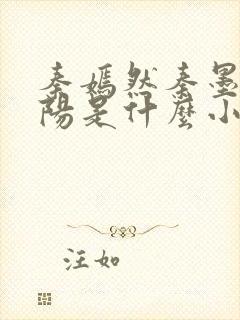 秦嫣然秦墨
陽是什麼小
汪如